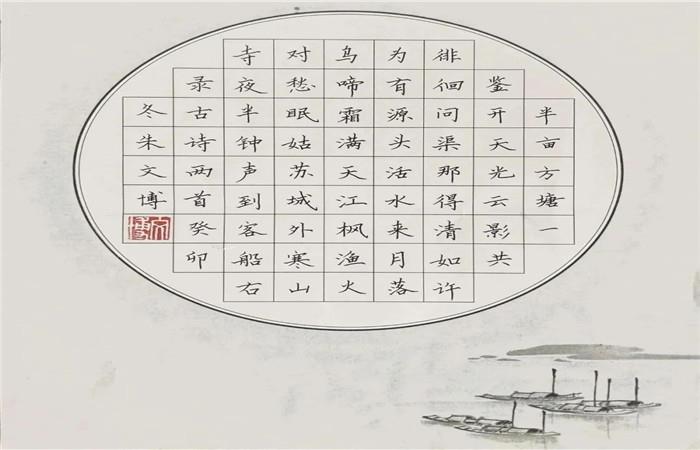 半亩方塘一
鉴开天光云影共
徘徊问渠那得清如许
为有源头活水来月落
乌啼霜满天江枫渔火
对愁眠姑苏城外寒山
寺夜半钟声到客船右
录古诗两首癸卯
冬朱文博